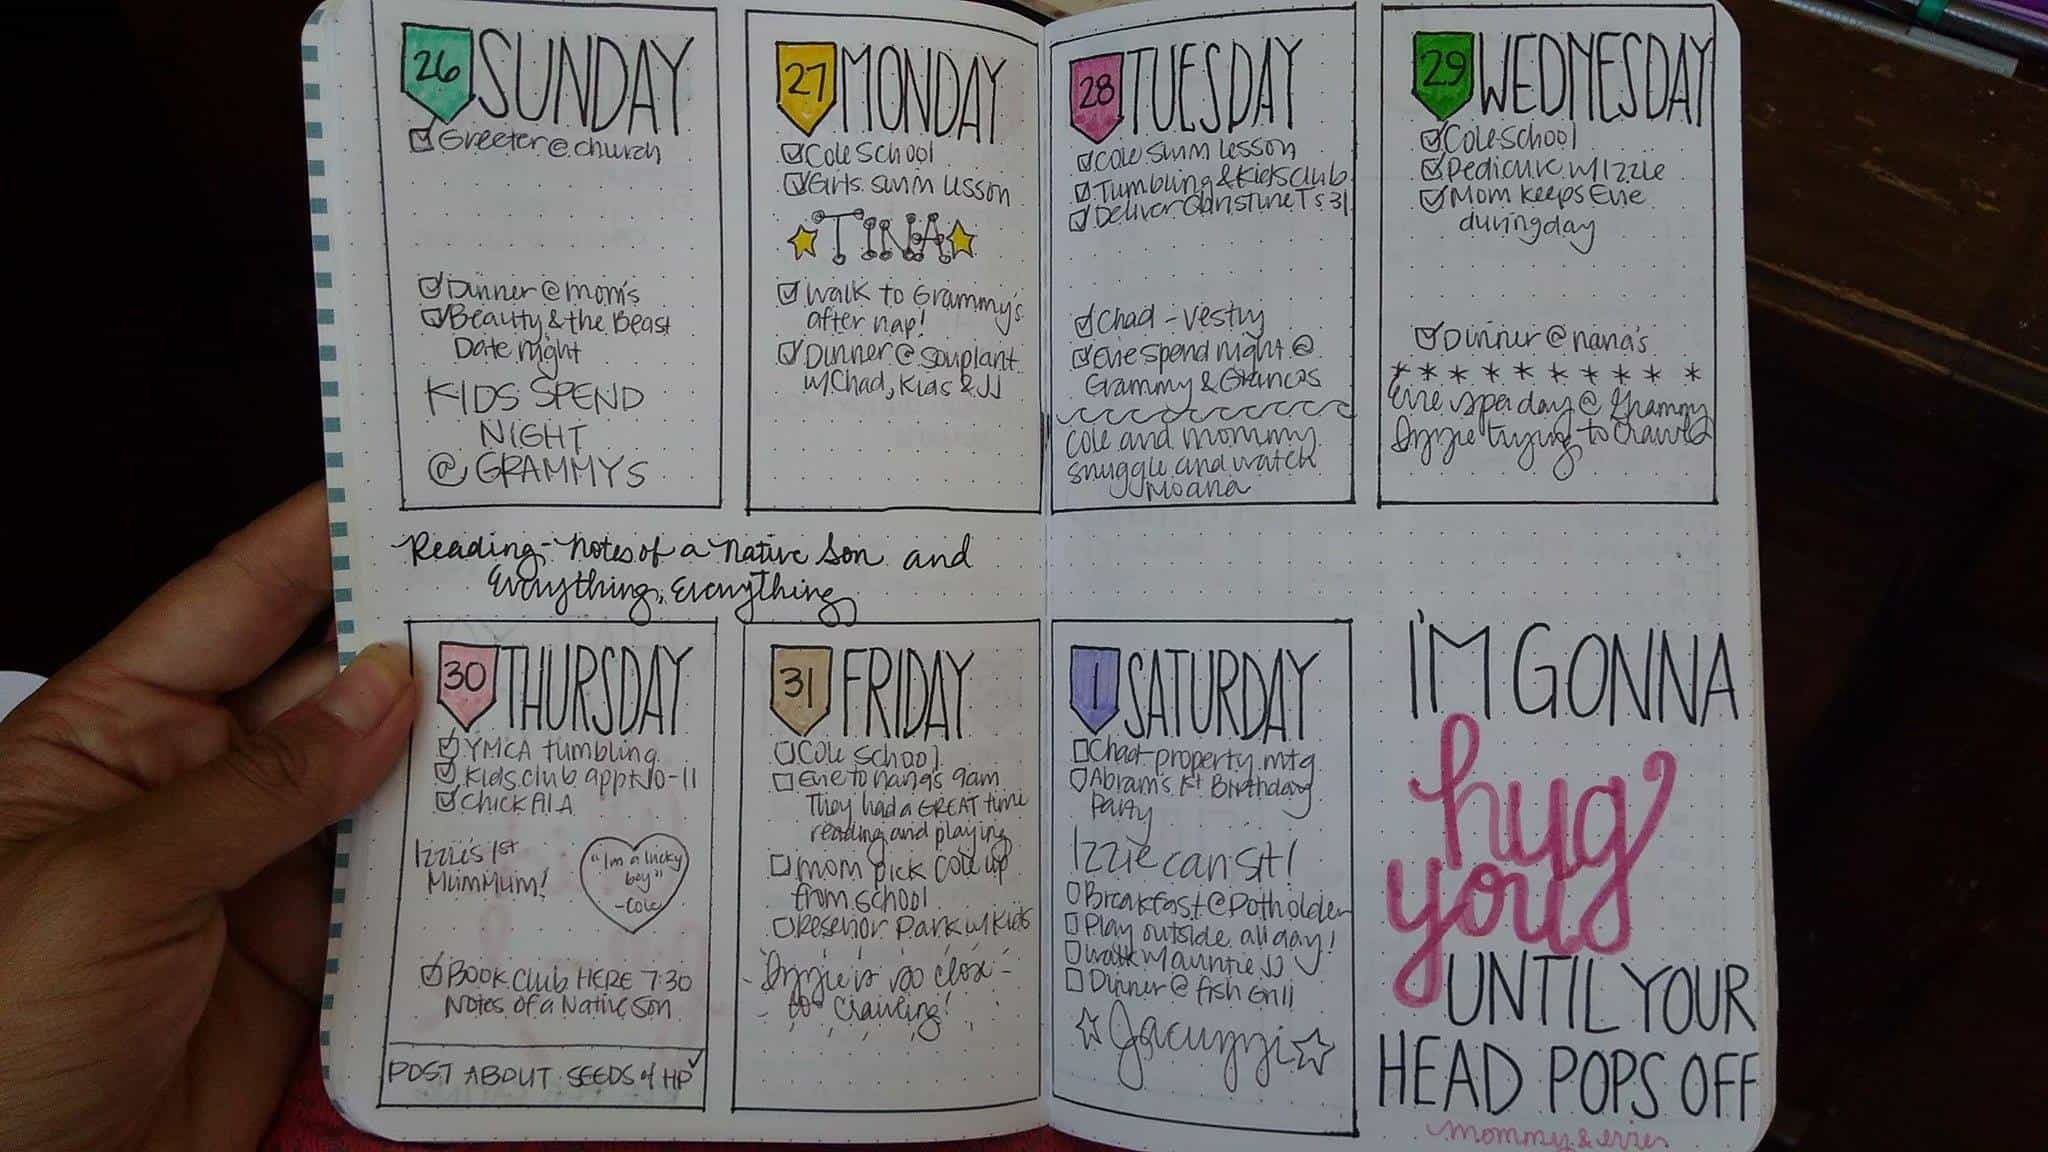 26 SUNDAY
Greeter @ church
Dinner @ mom's
Beauty & the Beast
Date night
KIDS SPEND
NIGHT
@ GRAMMYS
27 MONDAY
Cole School
Girls swim lesson
TINA
Walk to Grammy's
after nap!
Dinner @ Souplant
w/Chad, Kids & JJ
28 TUESDAY
Cole swim lesson
Tumbling & Kidsclub
Deliver Christine Ts 31
Chad - Vestry
Evie spend night @
Grammy & Grancas
Cole and mommy
snuggle and watch
Moana
29 WEDNESDAY
Cole School
Pedicure w/Izzie
Mom keeps Evie
during day
Dinner @ nana's
* * * * * * * * * *
Evie day @ Grammy
Izzie trying to crawl
Reading - Notes of a Native Son and
Everything, Everything
30 THURSDAY
YMCA tumbling
Kids club appt 10-11
Chick fil A
Izzie's 1st
MumMum!
"I'm a lucky
boy"
- Cole
BOOK Club HERE 7:30
Notes of a Native Son
POST ABOUT SEEDS of HP
31 FRIDAY
Cole School
Evie to nana's 9am
They had a GREAT time
reading and playing
mom pick Cole up
from school
Reservior Park w/ Kids
- Izzie is so close -
to crawling!
1 SATURDAY
Chad - property mtg
Abram's 1st Birthday
Party
Izzie can sit!
Breakfast @ Potholder
Play outside all day!
Walk w/ auntie JJ
Dinner @ fish Grill
Jacuzzi
I'M GONNA
hug
you
UNTIL YOUR
HEAD POPS OFF
mommy & evie